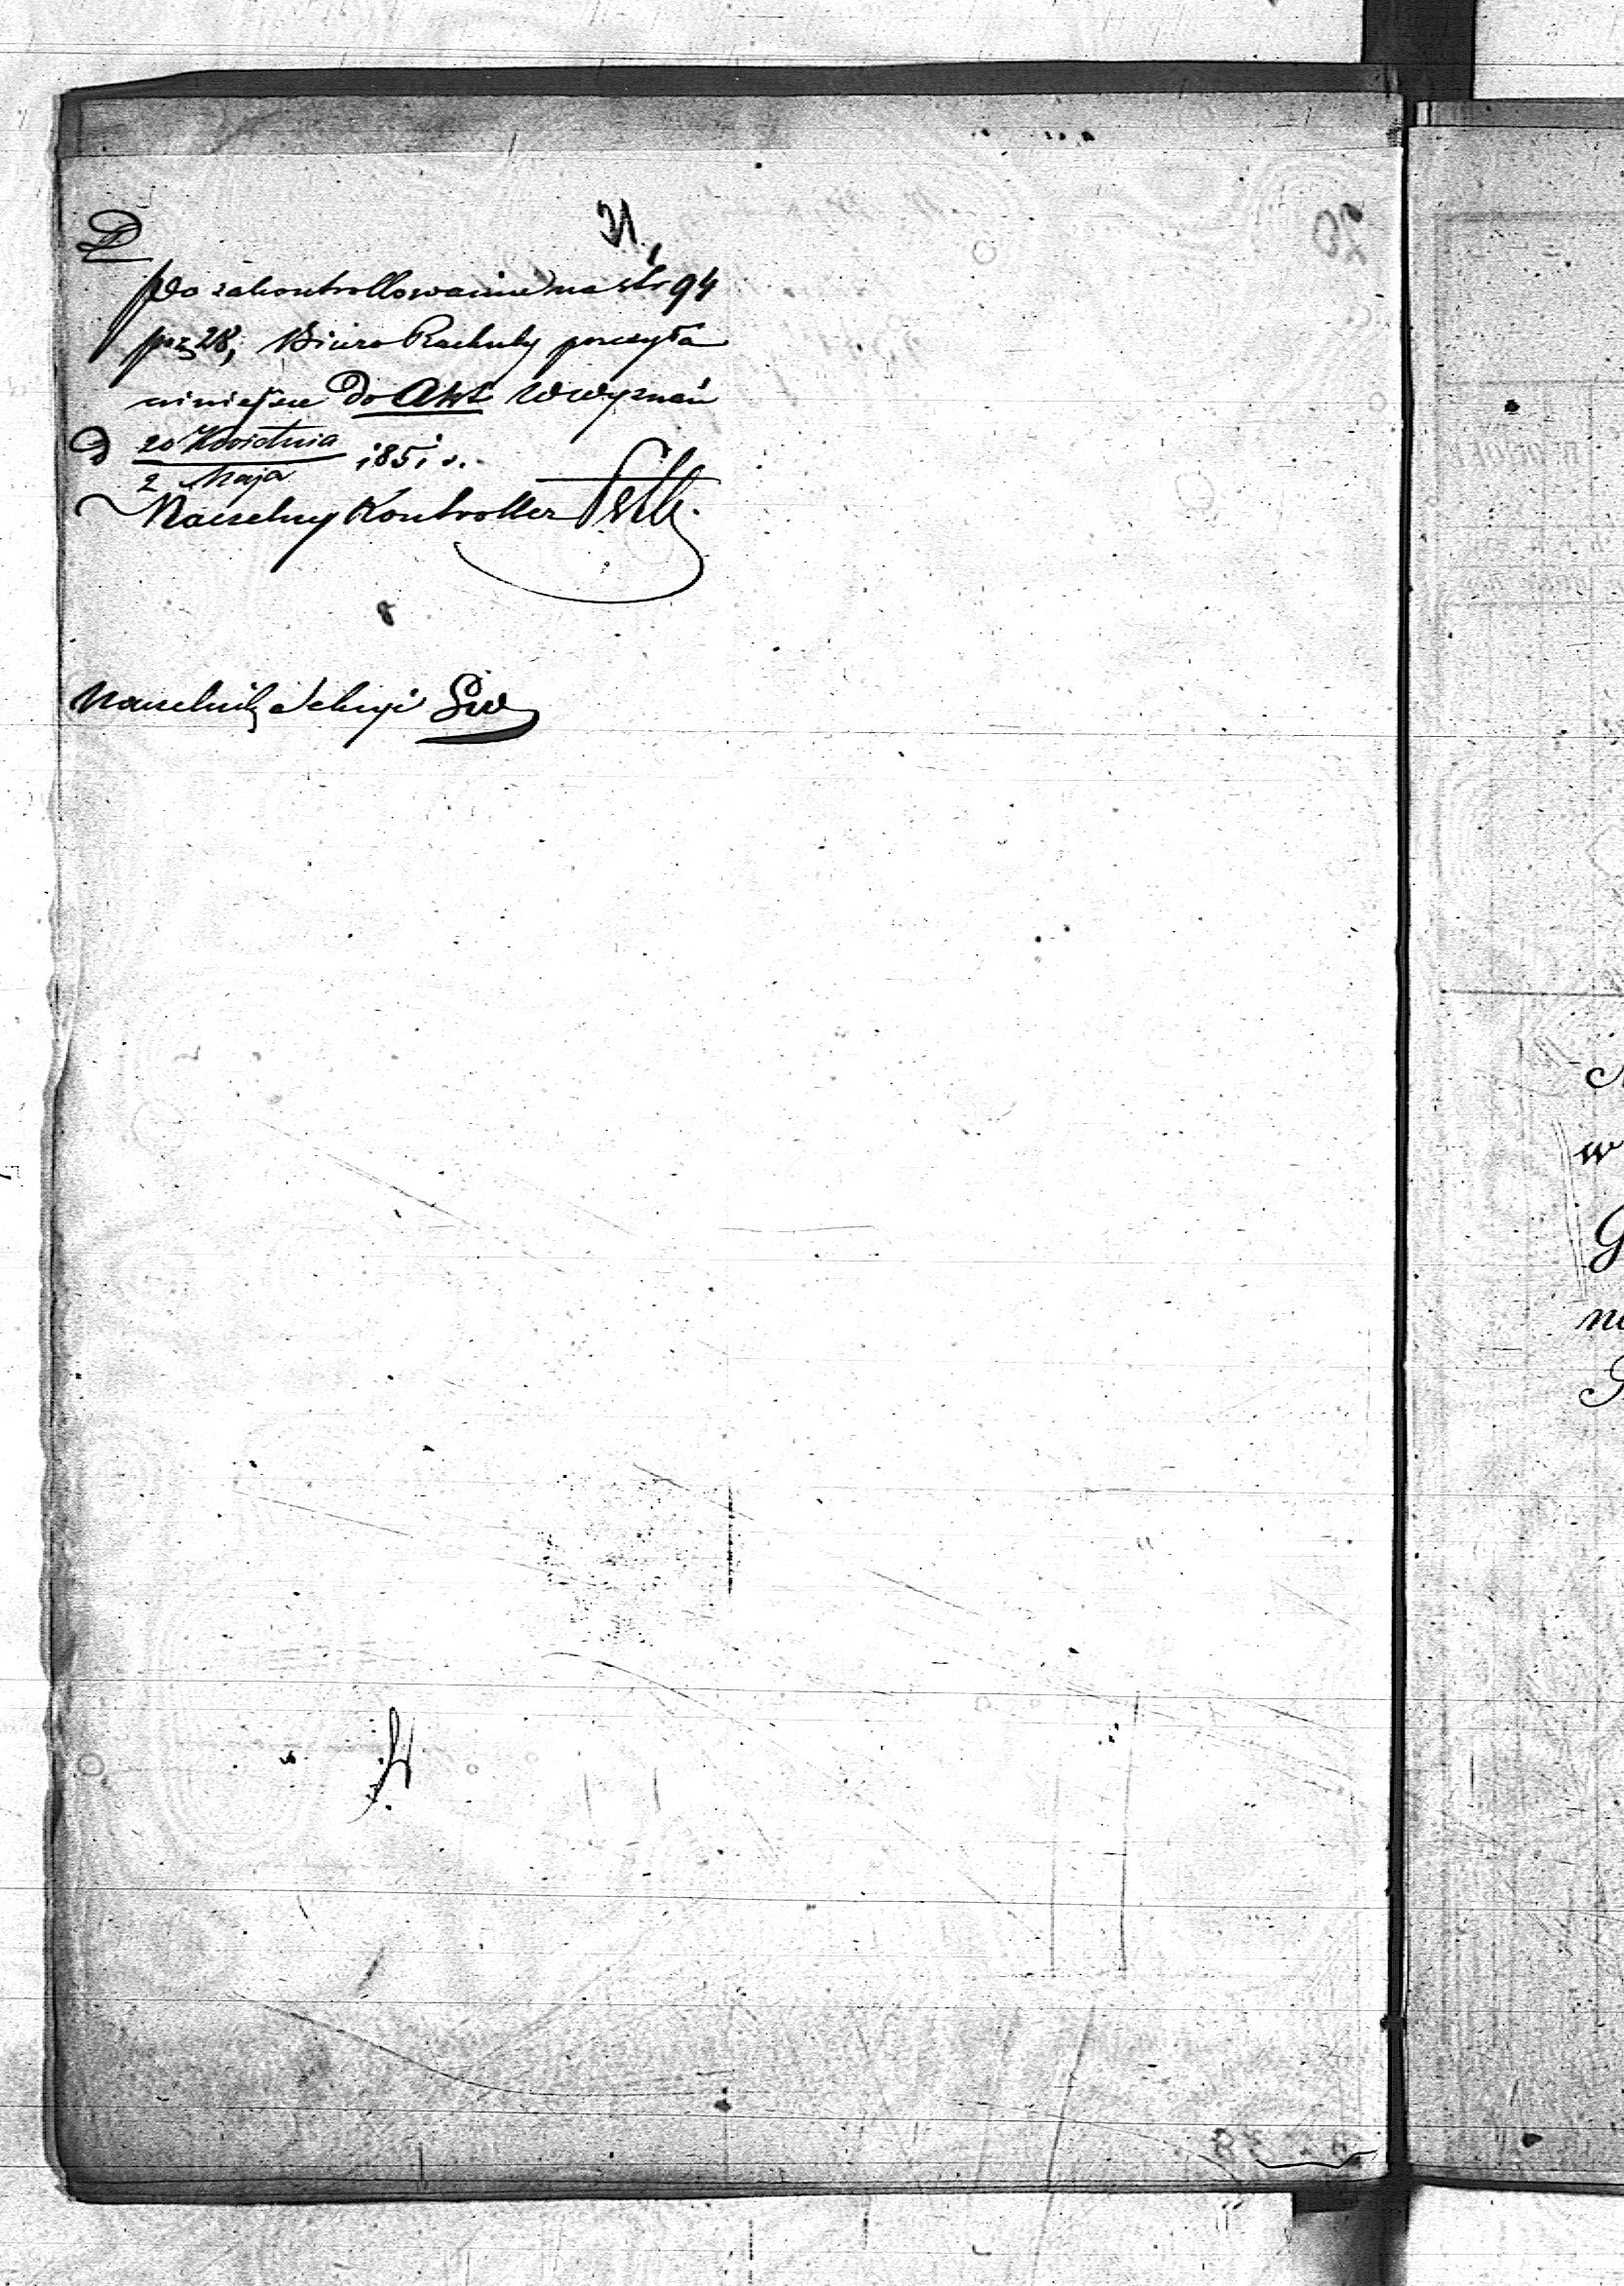 Po zakontrollowaniu na str 94
poz 28, Biuro Rachuby poszyła
niniejsze do Akt Wwyznań
d 20 Kwietnia
2 Maja 1851 r.
Naczelny Kontroller
Naczelnik Sekcyi